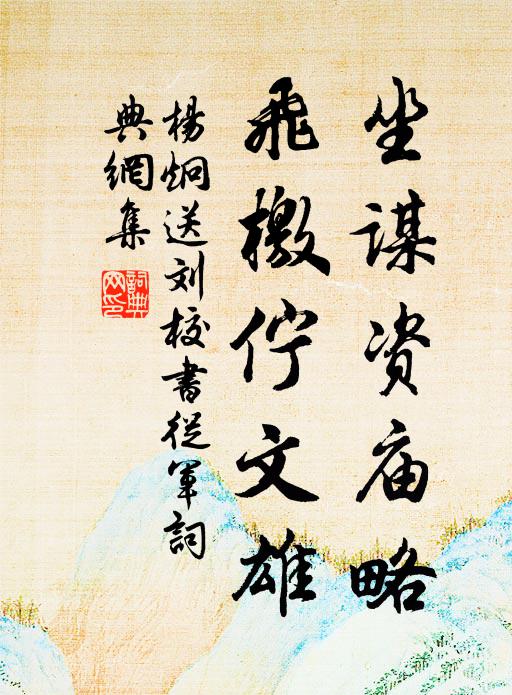 坐谋资庙略
飛檄佇文雄
楊炯送刘校書從軍詞
典網集
詞典網印